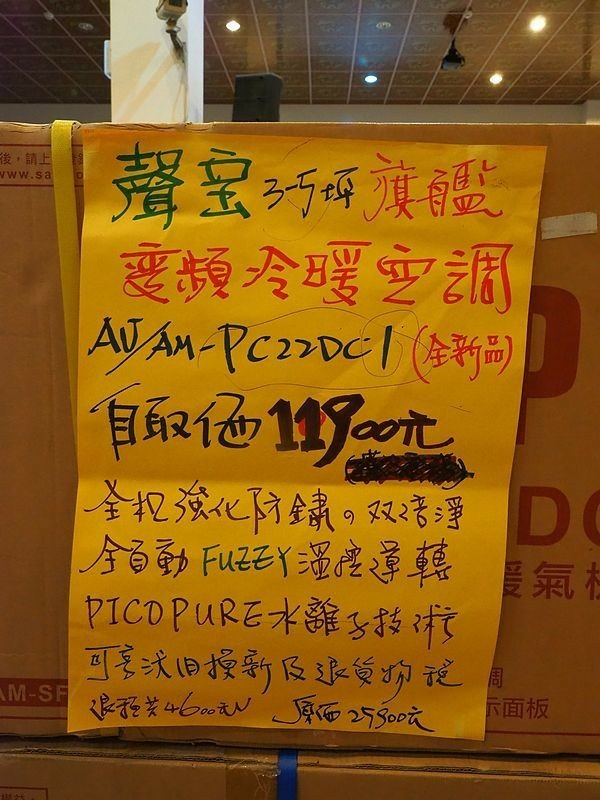 後，請上
www.sa
聲宝 3-5坪 旗艦
變頻冷暖空調
AU/AM-PC22DC1 (全新品)
自取価 11900元
全机強化防鏽。双倍淨
全自動 FUZZY 溫控運轉
PICOPURE 水離子技術
可享汰旧換新及退貨物稅
退稅共4600元 原価 25900元
P
DC
暖氣機
AM-SF
調
示面板